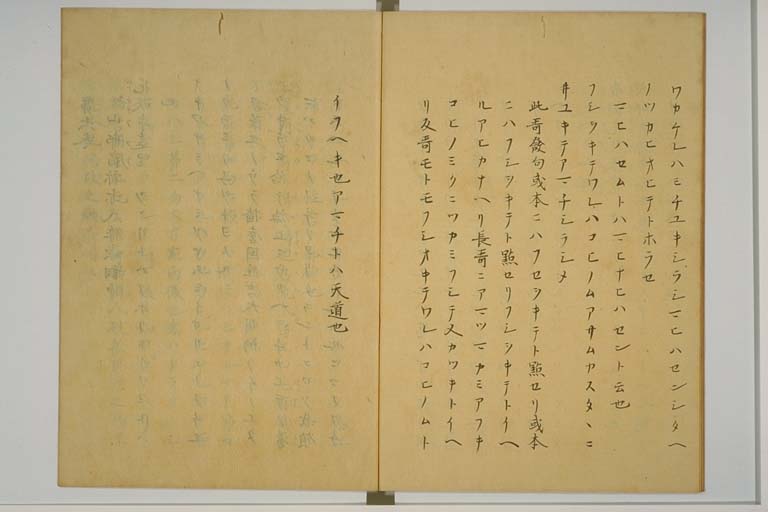 ワカケレハミチユキシラシマヒハセンシタヘ
ノツカヒオヒテトホラセ
マヒハセムトハマヒナヒハセント云也
フシツキテワレハコヒノムアサムカスタヽニ
井ユキテアマチシラシメ
此哥發句或本ニハフセシキテト點セリ或本
ニハフシシキテト點セリフシシキテトイヘ
ルアヒカナヘリ長哥ニアマツマカミアフキ
コヒノミクニツカミフシテ又カツキトイヘ
リ反哥モトモフシオキテワレハコヒノムト
イフヘキ也アマチトハ天道也